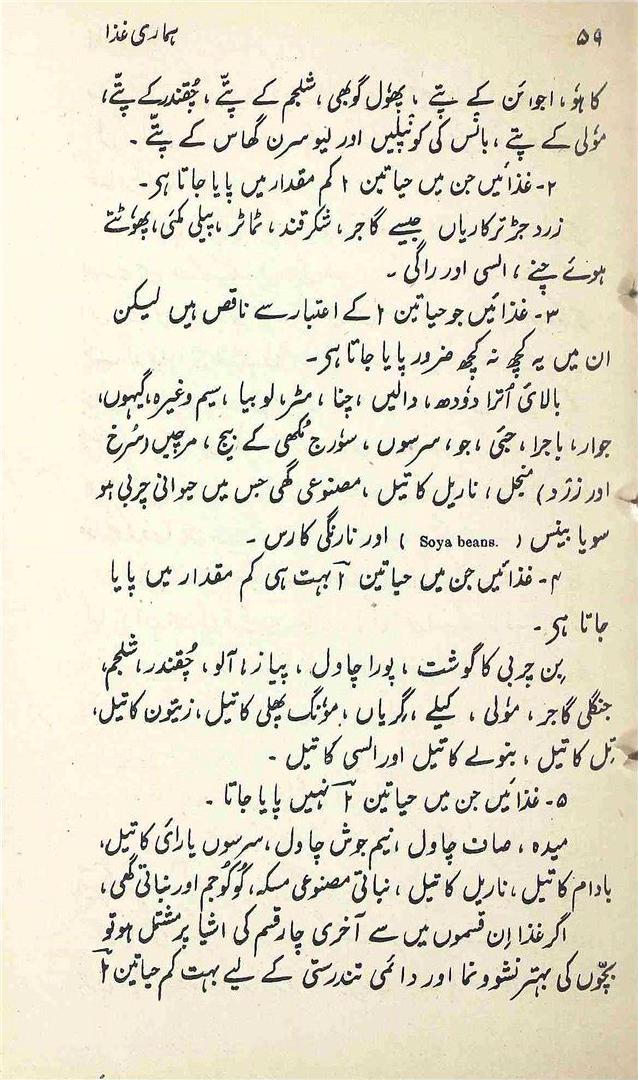 ۵۹ ہماری غذا
کاہو، اجوائن کے پتے، پھول گوبھی، شلجم کے پتّے، چُقندر کے پتّے،
مولی کے پتے، بانس کی کونپلیں اور لیوسرن گھاس کے پتّے۔
۲۔ غذائیں جن میں حیاتین ا کم مقدار میں پایا جاتا ہی۔
زرد جڑ ترکاریاں جیسے گاجر، شکرقند، ٹماٹر، پیلی مکئی، پھوٹتے
ہوئے چنے، السی اور راگی۔
۳۔ غذائیں جو حیاتین ا کے اعتبار سے ناقص ہیں لیکن
ان میں یہ کچھ نہ کچھ ضرور پایا جاتا ہی۔
بالائ اُترا دودھ، دالیں، چنا، مٹر، لوبیا، سیم وغیرہ، گیہوں،
جوار، باجرا، جئی، جو، سرسوں، سورج مُکھی کے بیج، مرچیں (سُرخ
اور زرد) منجل، ناریل کا تیل، مصنوعی گھی جس میں حیوانی چربی ہو
سویا بینس (Soya beans.) اور نارنگی کا رس۔
۴۔ غذائیں جن میں حیاتین آ بہت ہی کم مقدار میں پایا
جاتا ہی۔
بِن چربی کا گوشت، پورا چاول، پیاز، آلو، چُقندر، شلجم،
جنگلی گاجر، مولی، کیلے، گِریاں، مونگ پھلی کا تیل، زیتون کا تیل،
تِل کا تیل، بنولے کا تیل اور السی کا تیل۔
۵۔ غذائیں جن میں حیاتین آ نہیں پایا جاتا۔
میدہ، صاف چاول، نیم جوش چاول، سرسوں یا رائ کا تیل،
بادام کا تیل، ناریل کا تیل، نباتی مصنوعی مسکہ، کُوکُوجم اور نباتی گھی،
اگر غذا اِن قسموں میں سے آخری چار قسم کی اشیا پر مشتمل ہو تو
بچّوں کی بہتر نشوونما اور دائمی تندرستی کے لیے بہت کم حیاتین آ